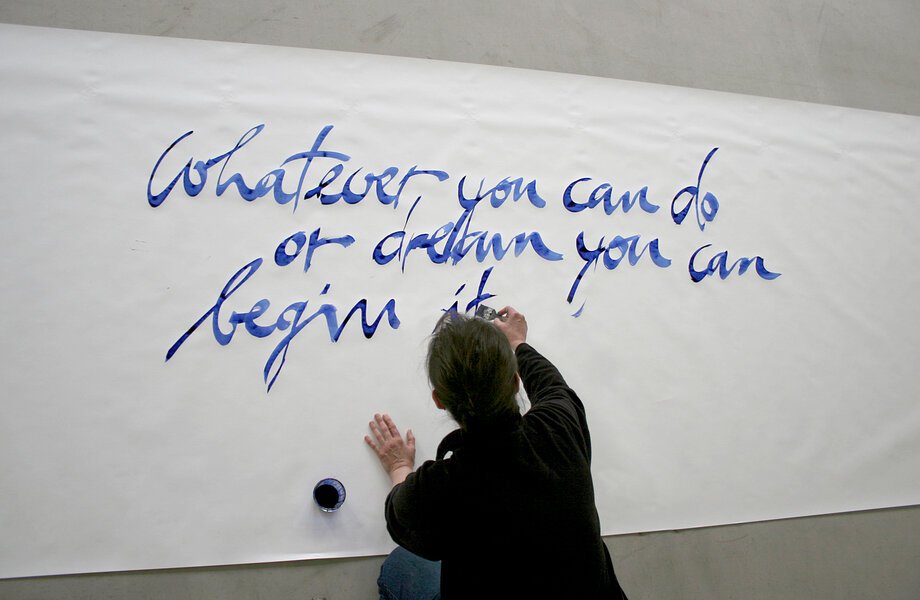 Whatever you can do
or dream you can
begin it